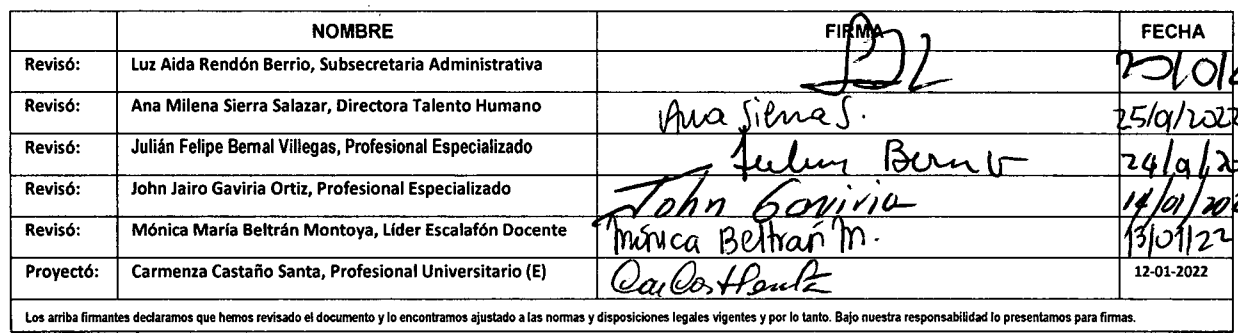 NOMBRE FIRMA FECHA
Revisó: Luz Aida Rendón Berrio, Subsecretaria Administrativa
Revisó: Ana Milena Sierra Salazar, Directora Talento Humano Ana Sierra S. 25/01/2022
Revisó: Julián Felipe Bernal Villegas, Profesional Especializado Julian Bernal V
Revisó: John Jairo Gaviria Ortiz, Profesional Especializado John Gaviria 14/01/202
Revisó: Mónica María Beltrán Montoya, Líder Escalafón Docente Mónica Beltrán M. 13/01/22
Proyectó: Carmenza Castaño Santa, Profesional Universitario (E) 12-01-2022
Los arriba firmantes declaramos que hemos revisado el documento y lo encontramos ajustado a las normas y disposiciones legales vigentes y por lo tanto. Bajo nuestra responsabilidad lo presentamos para firmas.